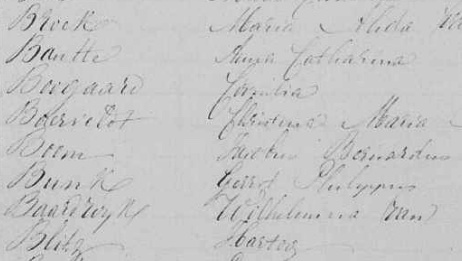 Broek Maria Alida
Bantte Anna Catharina
Boogaard Cornilia
Boerrielot Christina Maria
Boom Jacobus Bernardus
Bunk Gerrit Philippus
Baardwyk Wilhelmina van
Blitz Hartog